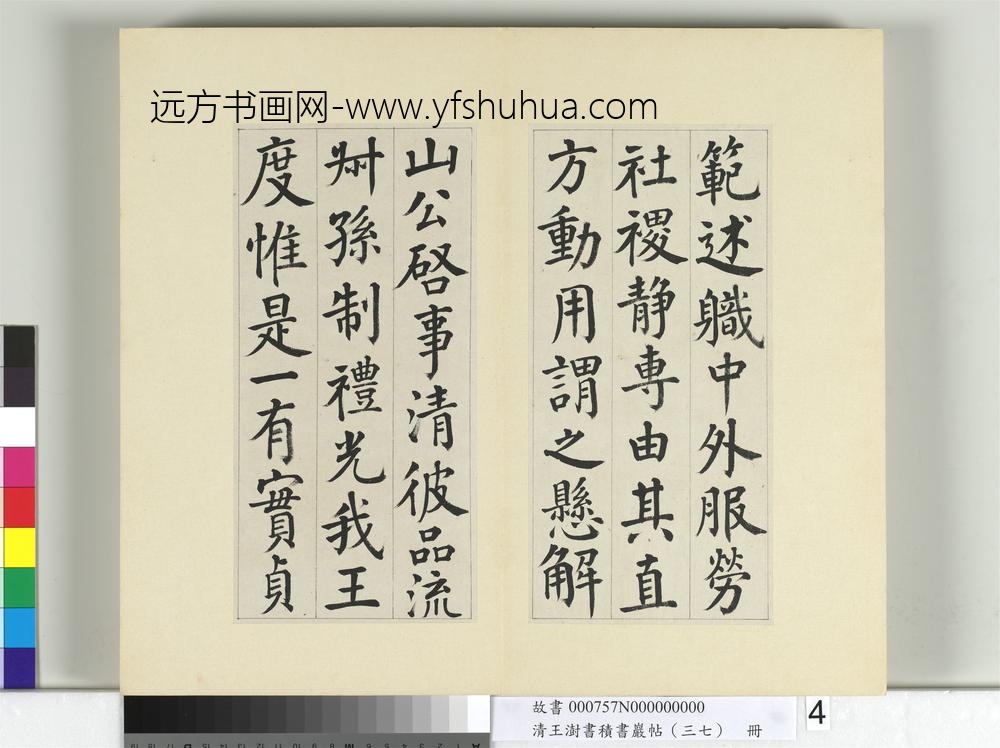 远方书画网-www.yfshuhua.com
範述職中外服勞
社稷静專由其直
方動用謂之懸解
山公啓事清彼品流
叔孫制禮光我王
度惟是一有實貞
故書 000757N000000000
清王澍書積書巖帖（三七） 冊
4